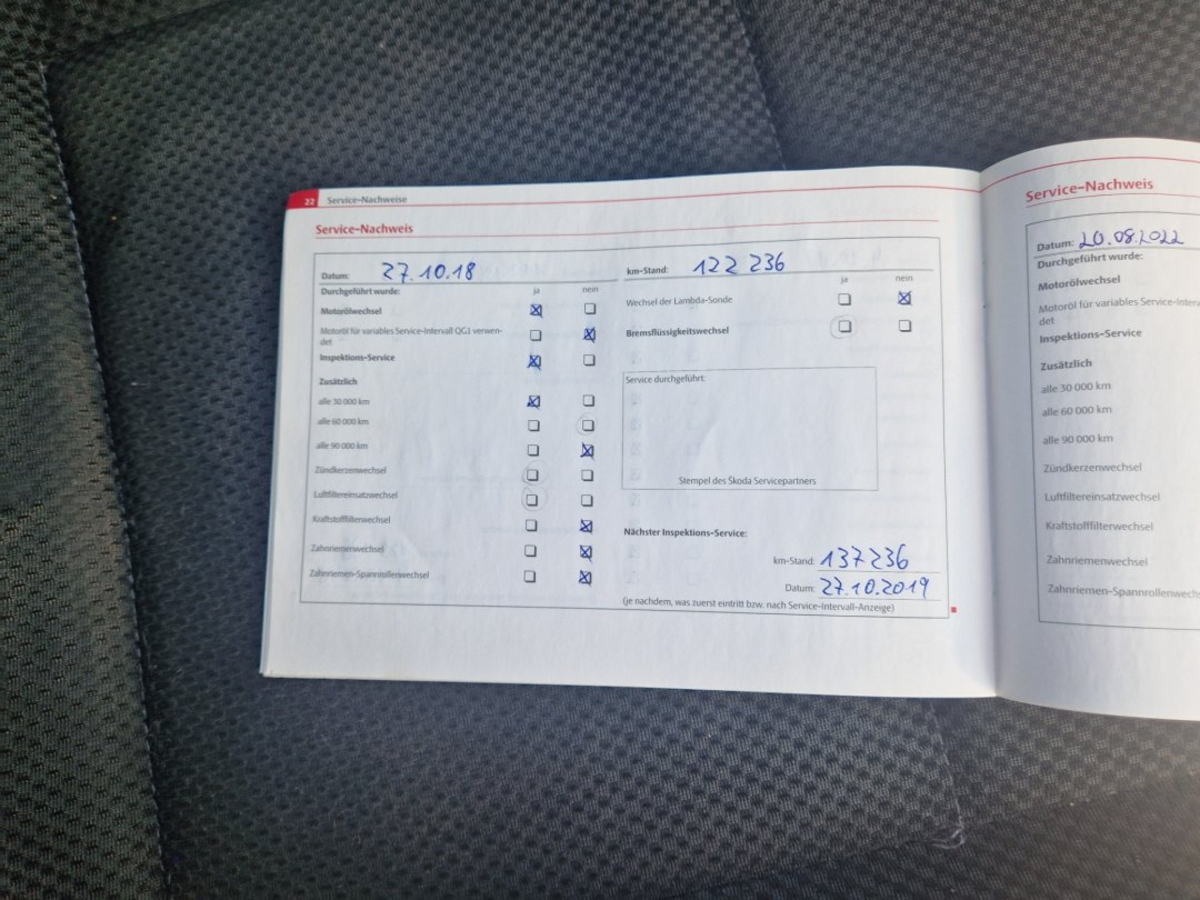 22 Service-Nachweise
Service-Nachweis
Datum: 27.10.18
km-Stand: 122 236
Durchgeführt wurde: ja nein
Motorölwechsel
Motoröl für variables Service-Intervall QG1 verwen-
det
Inspektions-Service
Zusätzlich
alle 30 000 km
alle 60 000 km
alle 90 000 km
Zündkerzenwechsel
Luftfiltereinsatzwechsel
Kraftstofffilterwechsel
Zahnriemenwechsel
Zahnriemen-Spannrollenwechsel
ja nein
Wechsel der Lambda-Sonde
Bremsflüssigkeitswechsel
Service durchgeführt:
Stempel des Škoda Servicepartners
Nächster Inspektions-Service:
km-Stand: 137 236
Datum: 27.10.2019
(je nachdem, was zuerst eintritt bzw. nach Service-Intervall-Anzeige)
Service-Nachweis
Datum: 20.08.2022
Durchgeführt wurde:
Motorölwechsel
Motoröl für variables Service-Inter
det
Inspektions-Service
Zusätzlich
alle 30 000 km
alle 60 000 km
alle 90 000 km
Zündkerzenwechsel
Luftfiltereinsatzwechsel
Kraftstofffilterwechsel
Zahnriemenwechsel
Zahnriemen-Spannrollenwechs